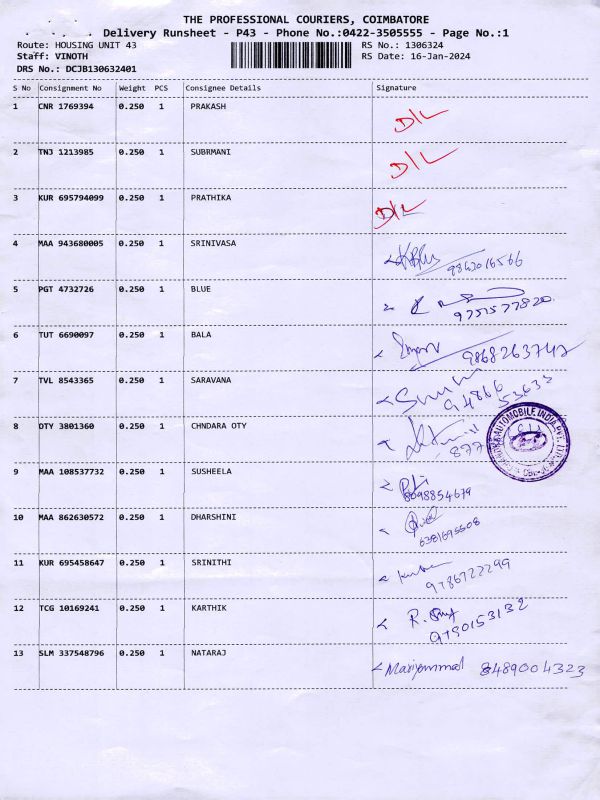 THE PROFESSIONAL COURIERS, COIMBATORE
Delivery Runsheet - P43 - Phone No.:0422-3505555 - Page No.:1
Route: HOUSING UNIT 43 RS No.: 1306324
Staff: VINOTH RS Date: 16-Jan-2024
DRS No.: DCJB130632401
S No Consignment No Weight PCS Consignee Details Signature
1 CNR 1769394 0.250 1 PRAKASH D/L
2 TNJ 1213985 0.250 1 SUBRMANI D/L
3 KUR 695794099 0.250 1 PRATHIKA D/L
4 MAA 943680005 0.250 1 SRINIVASA
5 PGT 4732726 0.250 1 BLUE
9751577820
6 TUT 6690097 0.250 1 BALA
9868263742
7 TVL 8543365 0.250 1 SARAVANA
8 DTY 3801360 0.250 1 CHNDARA OTY
877
AUTOMOBILE INDIA PVT. LTD.
9 MAA 108537732 0.250 1 SUSHEELA
8098854679
10 MAA 862630572 0.250 1 DHARSHINI
6381695508
11 KUR 695458647 0.250 1 SRINITHI
9786722299
12 TCG 10169241 0.250 1 KARTHIK
9790153132
13 SLM 337548796 0.250 1 NATARAJ Mariyammal 8489004323